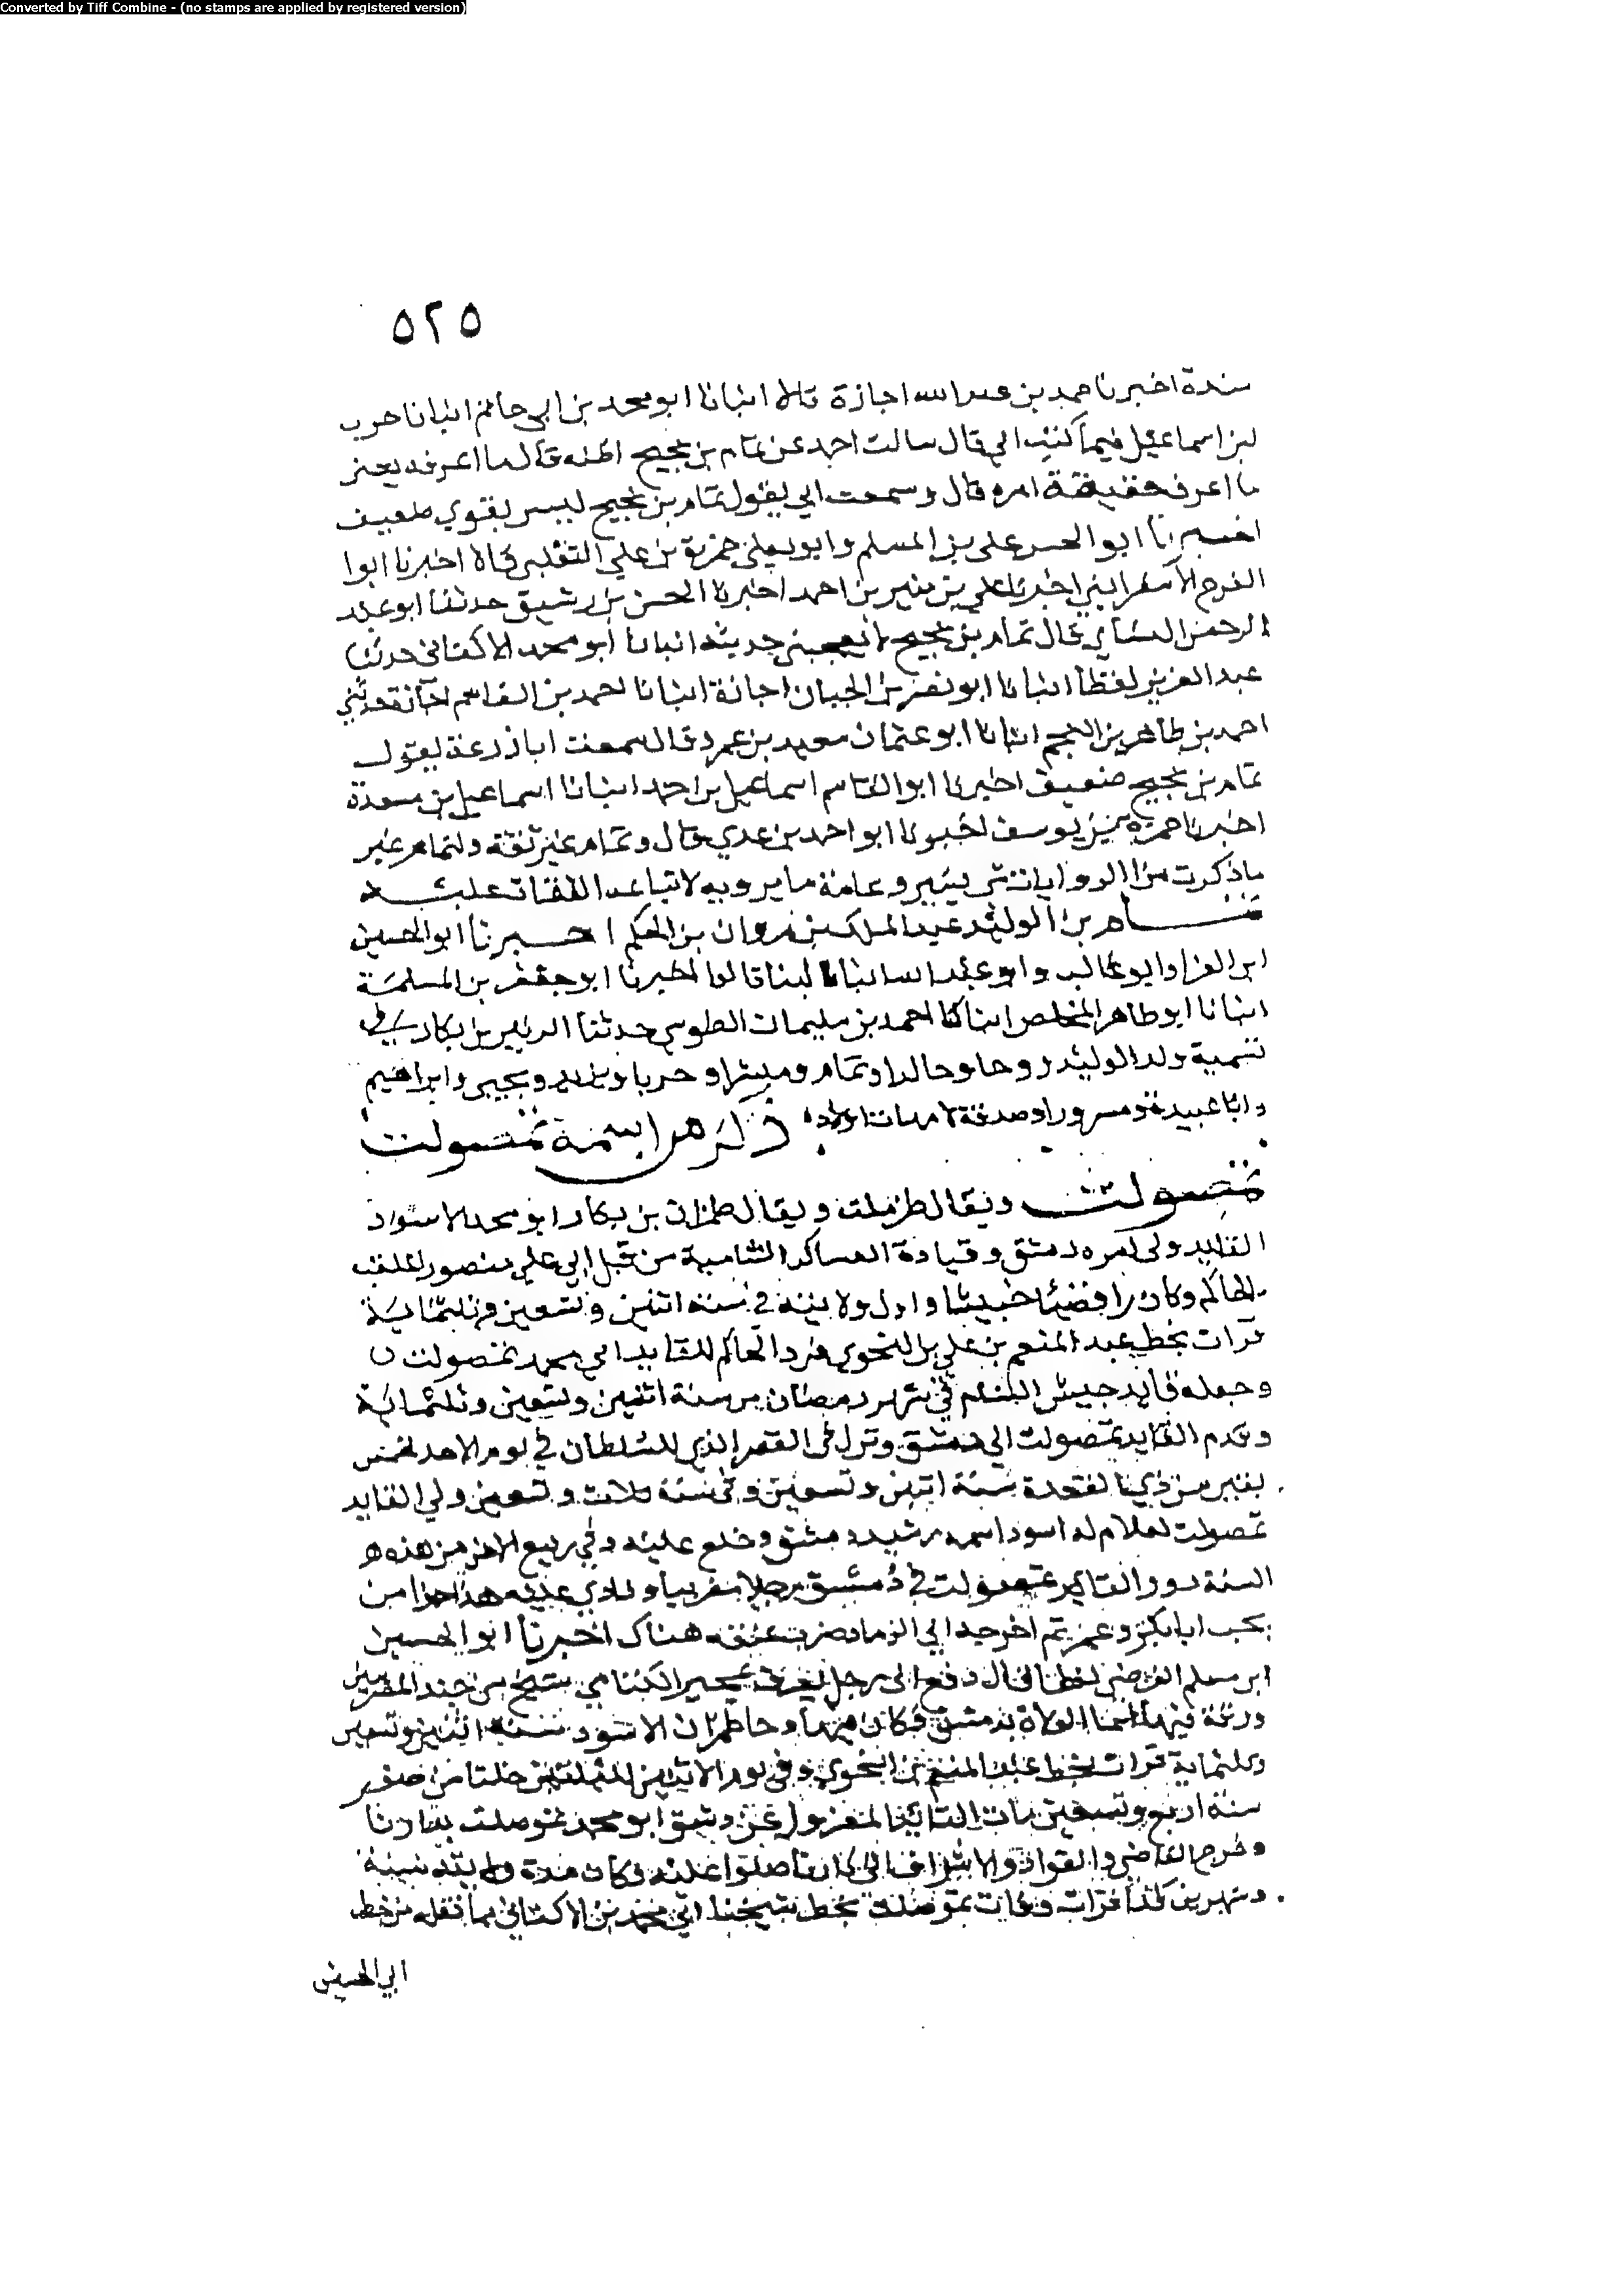 Converted by Tiff Combine - (no stamps are applied by registered version)
٥٢٥
مندة اخبرنا حمد بن عبد الله اجازة قالا انبانا ابو محمد بن ابي حاتم انبانا حرب
ابن اسماعيل فيما كتب الي قال سالت احمد عن تمام بن نجيح اظنه قال ما اعرفه يعني
ما اعرف حقيقة امره قال وسمعت ابي يقول تمام بن نجيح ليس بقوي ضعيف
اخبرنا ابو الحسن علي بن المسلم وابو يعلى حمزة بن علي التغلبي قالا اخبرنا ابوا
الفرج الاسفرايني اخبرنا علي بن منير بن احمد اخبرنا الحسن بن رشيق حدثنا ابو عبد
الرحمن النسائي قال تمام بن نجيح لا يعجبني حديثه انبانا ابو محمد الاكفاني حدثنا
عبد العزيز لفظا انبانا ابو نصر بن الجبان اجازة انبانا احمد بن القاسم اجازة حدثني
احمد بن طاهر بن النجم انبانا ابو عثمان سعيد بن عمرو قال سمعت اباذرعة يقول
تمام بن نجيح ضعيف اخبرنا ابو القاسم اسماعيل بن احمد انبانا اسماعيل بن مسعدة
اخبرنا حمزة بن يوسف اخبرنا ابو احمد بن عدي قال وتمام غير ثقة ولتمام غير
ما ذكرت من الروايات شي يسير وعامة ما يرويه لا يتابعه الثقات عليه
تمام بن الوليد عبد الملك بن مروان بن الحكم اخبرنا ابو الحسين
ابن الفرا وابو غالب وابو عبد الله انبانا البنا قالوا اخبرنا ابو جعفر بن المسلمة
انبانا ابو طاهر المخلص انبانا احمد بن سليمان الطوسي حدثنا الزبير بن بكار في
تسمية ولد الوليد روحا وخالدا وتمام ومبشرا وحربا ويزيد ويحيى وابراهيم
وابا عبيدة ومسرورا وصدقة لامهات اولاد ذكر من اسمه تمصولت
تمصولت ويقال طزملت ويقال طمزان بن بكار ابو محمد الاسود
القايد ولى امره دمشق وقيادة العساكر الشامية من قبل ابي علي منصور الملقب
بالحاكم وكان رافضيا خبيثا واول ولايته في سنة اثنين وتسعين وثلثماية
قرات بخط عبد المنعم بن علي بن النحوي ورد الحاكم للقايد ابي محمد تمصولت
وجعله قايد جيش الشام في شهر رمضان من سنة اثنين وتسعين وثلثماية
وقدم القايد تمصولت الى دمشق ونزل في القصر الذي للسلطان في يوم الاحد لخمس
بقين من ذي القعدة سنة اثنين وتسعين وفي سنة ثلاث وتسعين ولي القايد
تمصولت لغلام له اسود اسمه رشيد دمشق وخلع عليه وفي ربيع الاخر من هذه
السنة دور القايد تمصولت في دمشق برجل مغربيا ونادي عليه هذا جزا من
يحب ابا بكر وعمر ثم اخرجه الي الرماد ضرب عنقه هناك اخبرنا ابو الحسين
ابن مسلم الفرضي لفظا قال دفع الى رجل يعرف الكتامي شيخ من جند المصريين
ورقة فيها اسما الولاة بدمشق فكان فيها وحا طمزان الاسود سنة اثنين وتسعين
وثلثماية قرات بخط عبد المنعم بن النحوي وفي يوم الاثنين لليلتين خلتا من صفر
سنة اربع وتسعين مات القايد المعزول عن دمشق ابو محمد تموصلت بداريا
وخرج القاضي والقواد والاشراف الى داريا صلوا عليه وكان مدة ولايته سنة
وشهرين كذا قرات وفات تموصلت بخط شيخنا ابي محمد بن الاكفاني مما نقله من خط
ابي الحسين